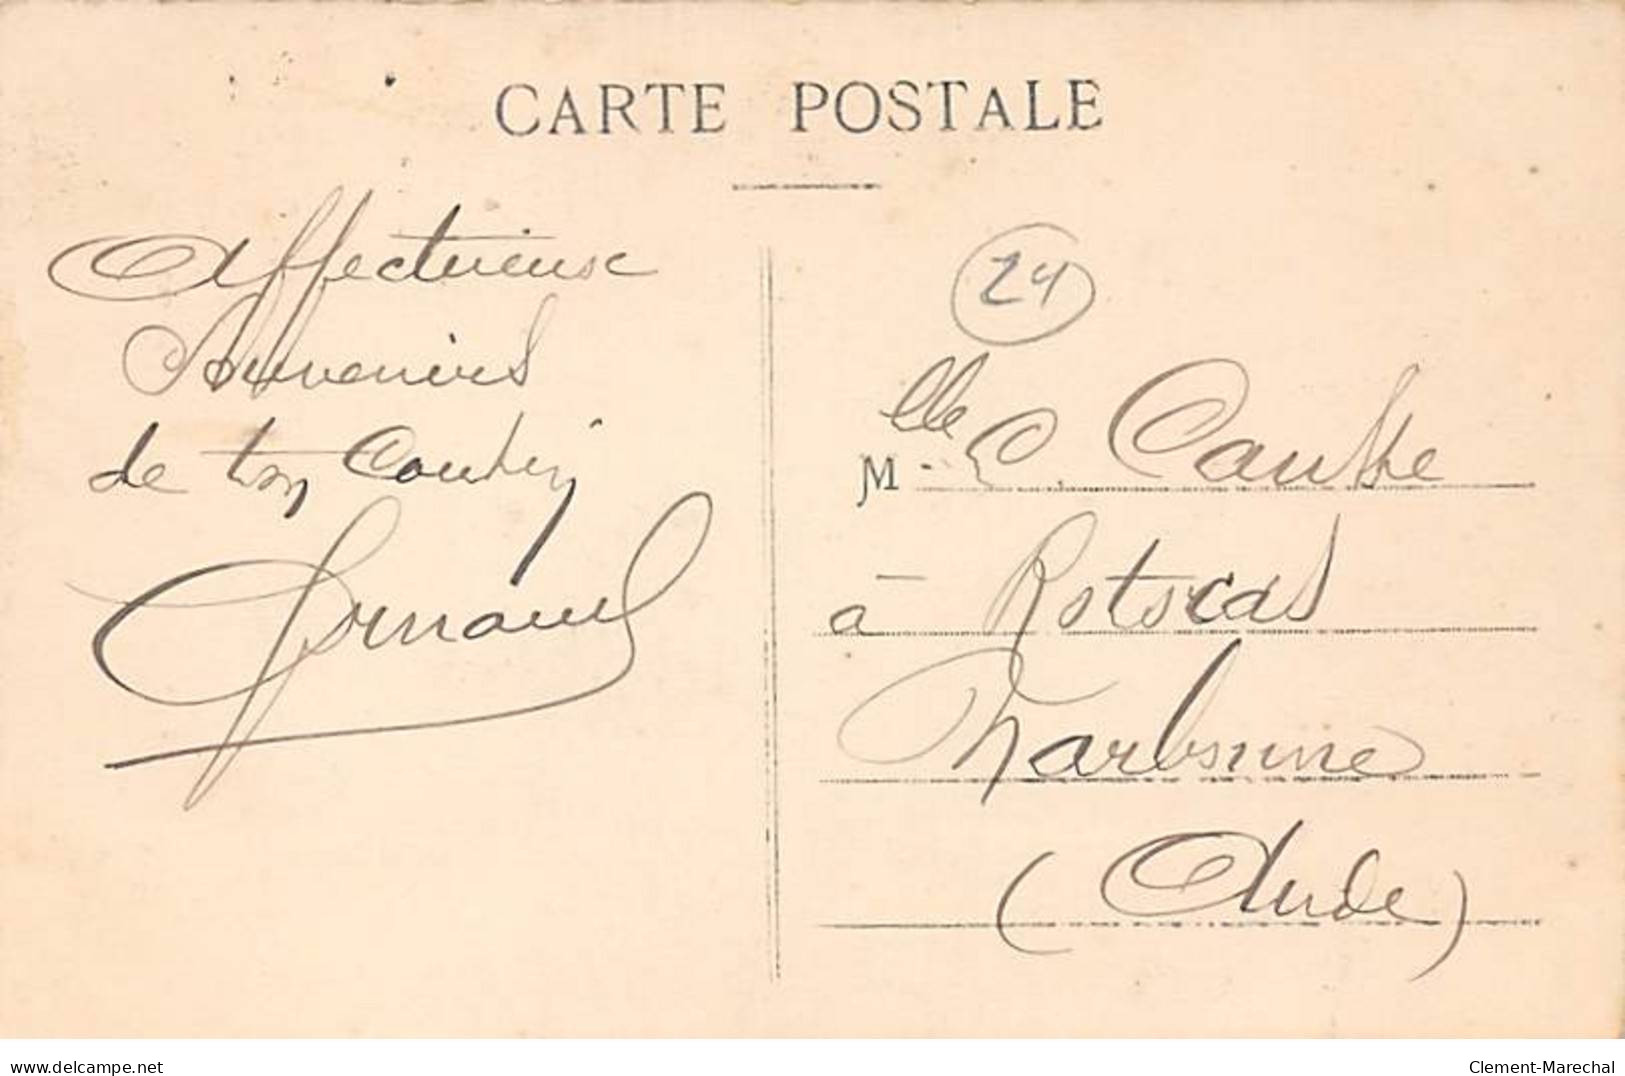 CARTE POSTALE
Affectueuse
Souvenirs
de ton Cousin
Armand
24
Mlle C.
à
Narbonne
(Aude)
www.delcampe.net
Clement-Marechal